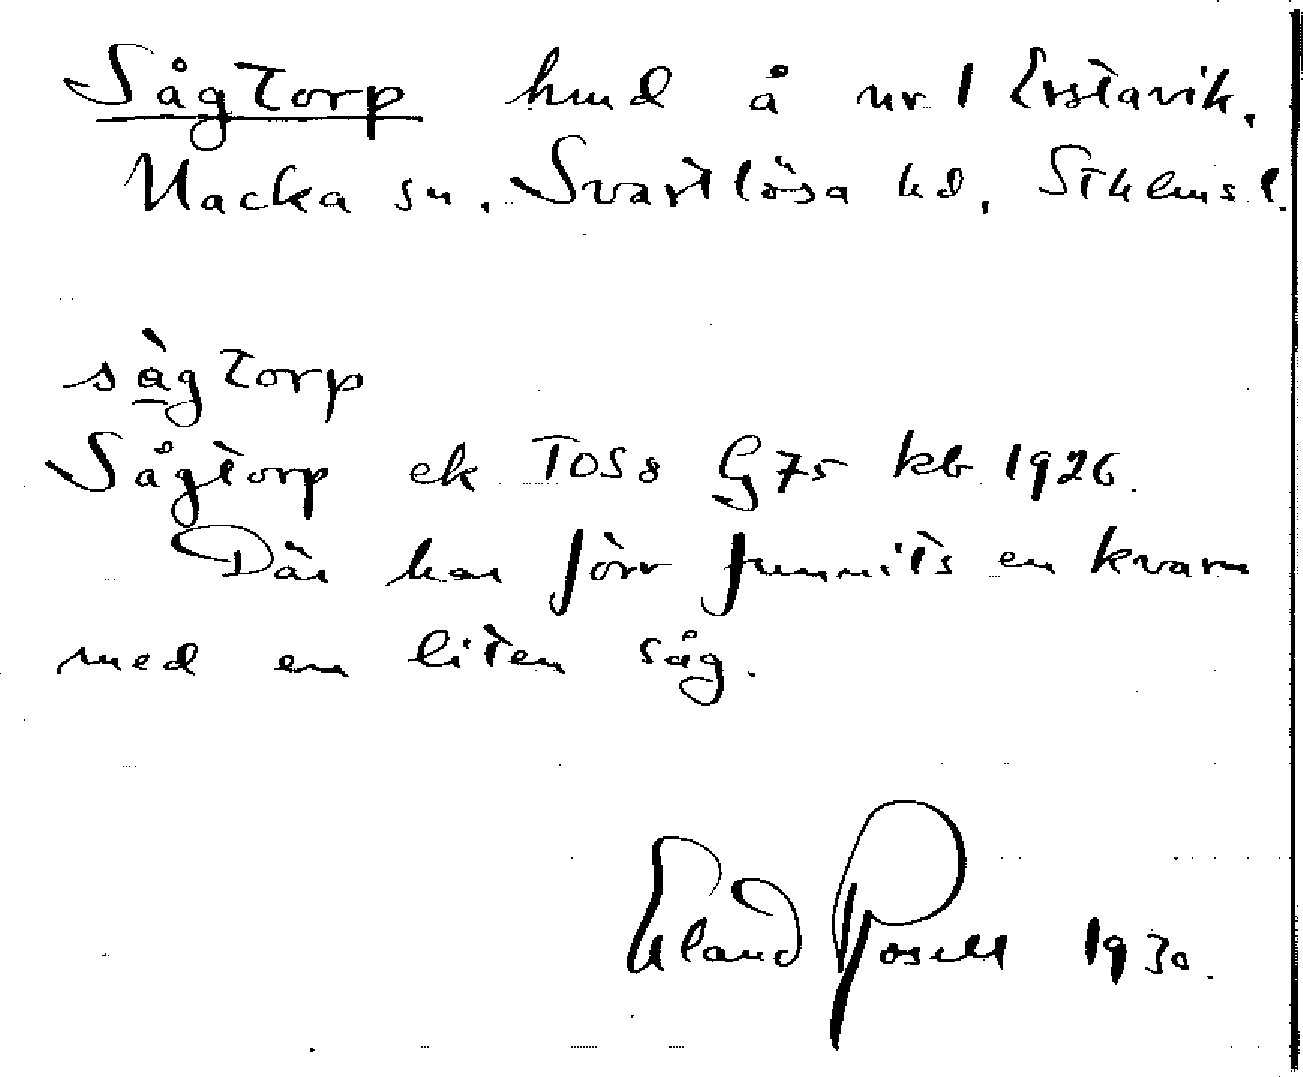 Sågtorp hmd å nr 1 Erstavik,
Nacka sn, Svartlösa hd, Sthlms l.
sàgtorp
Sågtorp ek TOS 8 G 75 kb 1926.
Där har förr funnits en kvarn
med en liten såg.
Erland Rosell 1930.